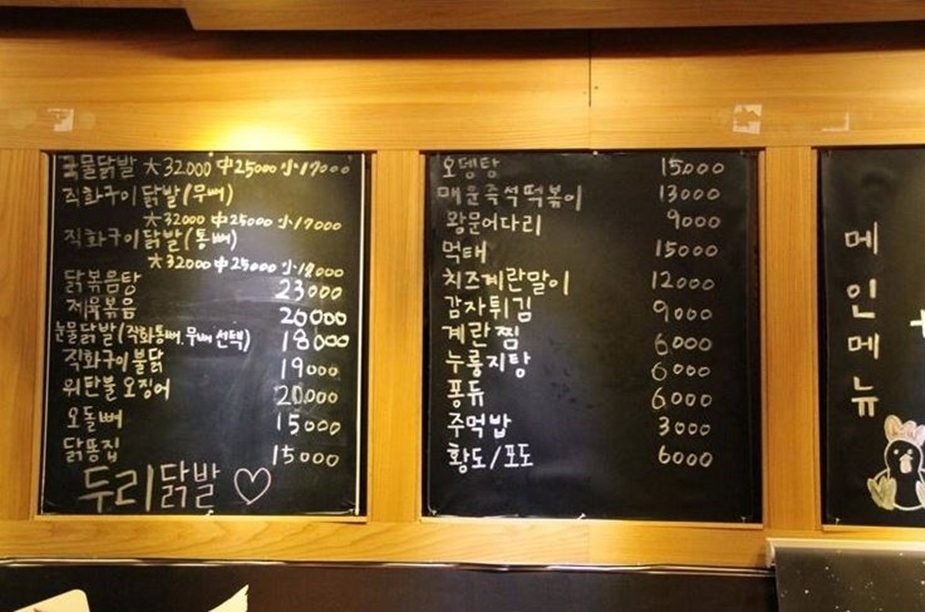 국물닭발 大32000 中25000 小17000
직화구이 닭발(무뼈)
大32000 中25000 小17000
직화구이 닭발(통뼈)
大32000 中25000 小17000
닭볶음탕 23000
제육볶음 20000
눈물닭발(직화통뼈.무뼈 선택) 18000
직화구이불닭 19000
위탄불오징어 20.000
오돌뼈 15000
닭똥집 15000
두리닭발 ♡
오뎅탕 15000
매운즉석떡볶이 13000
왕문어다리 9000
먹태 15000
치즈계란말이 12000
감자튀김 9000
계란찜 6000
누룽지탕 6000
퐁듀 6000
주먹밥 3000
황도/포도 6000
메인메뉴